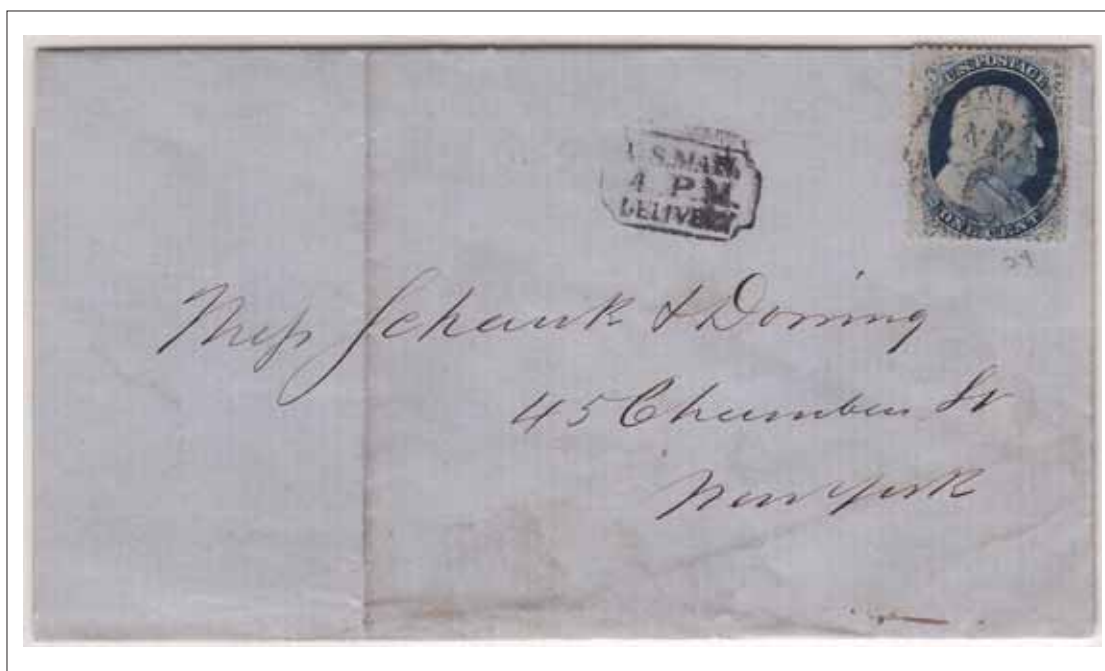 U.S. POSTAGE
ONE CENT
U.S. MAIL
4 P.M.
DELIVERY
24
Mess Schank & Doning
45 Chambers St
New York